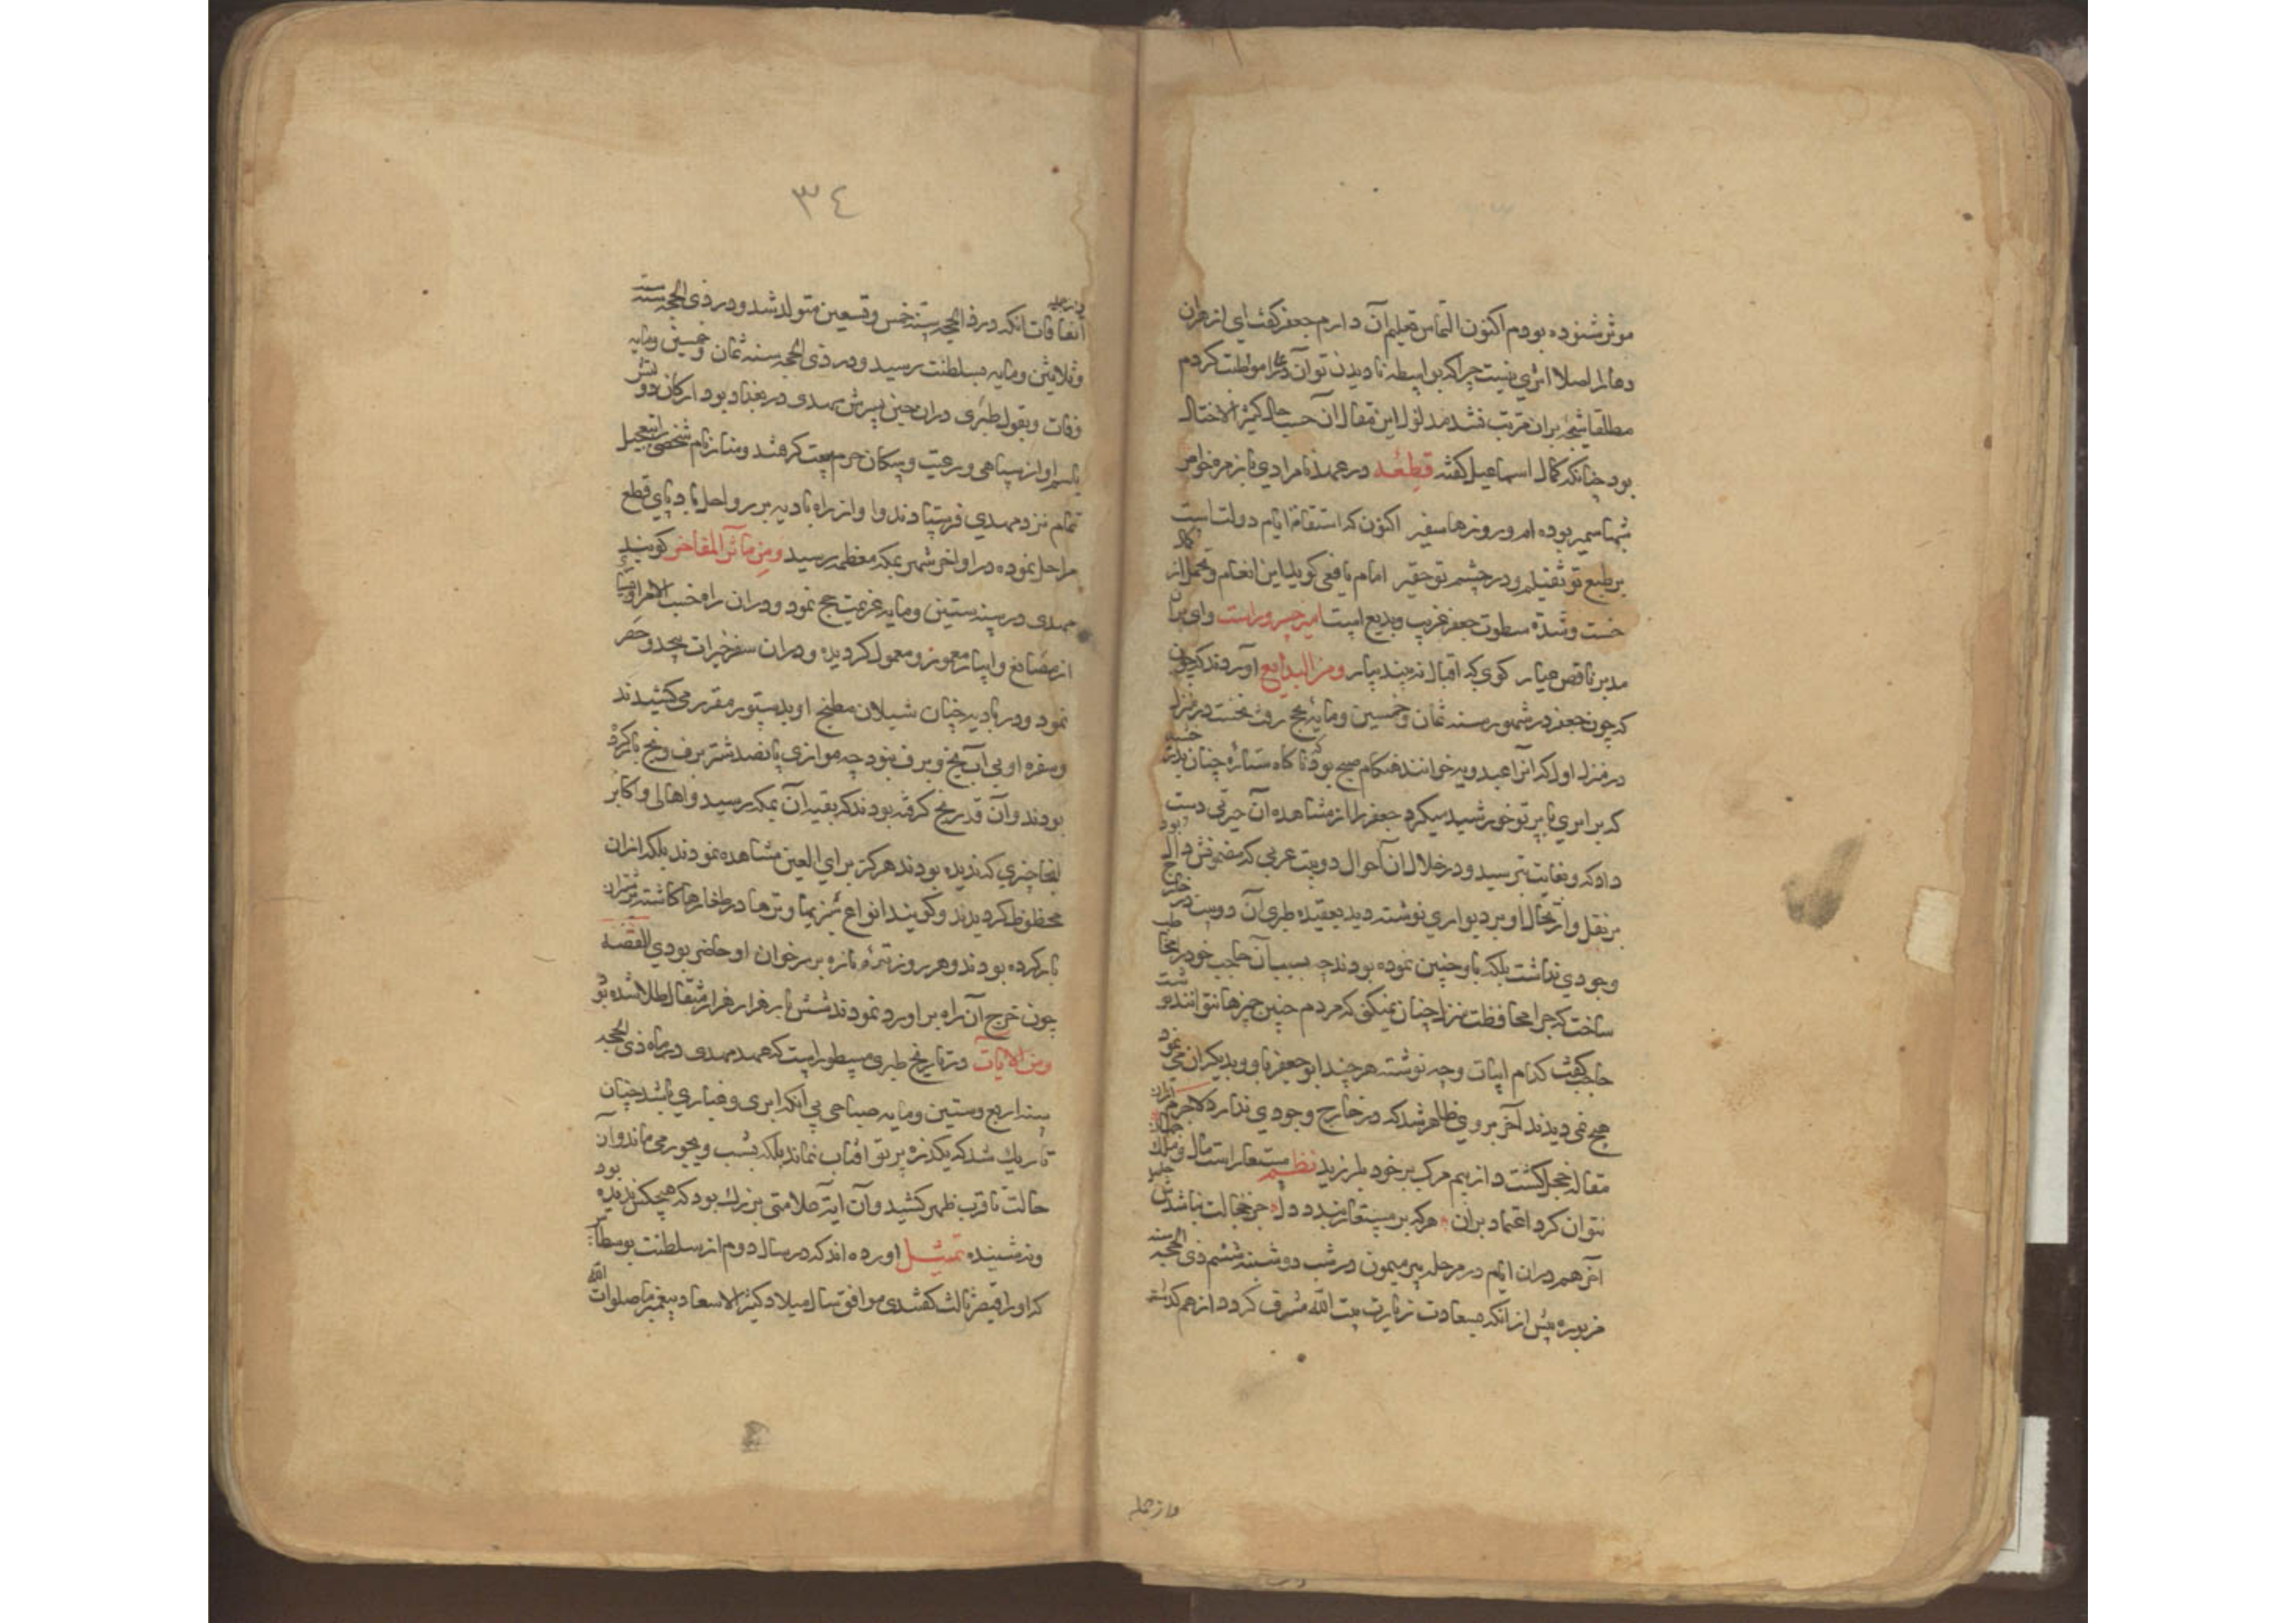 موثر شنوده بودم اکنون التماس تعلیم آن دارم جعفر گفت ای
دعا را اصلا اثری نیست چرا که بواسطه نادیدن تو آن دعا را موظبت کردم
مطلقا نتیجه بران مترتب نشد مدلول این مقال آن حسب حال کثیر الاختلال
بود چنانکه کمال اسماعیل گفته قطعه در عهد نامرادی
سمیر بوده ام و روزها سفیر اکنون که استقامة ایام دولتست
بر طبع تو ثقیلم و در چشم تو حقیر امام یافعی کوید این انعام و تحمل از
خست و شدة سطوت جعفر غریب و بدیع است امیر خسرو راست وای بران
مدبر ناقص عیار کوی که اقبال نه بیند ببار ومن البدایع آورده‌اند که چون
که چون جعفر در شهور سنه ثمان و خمسین و مایه بحج رفت نخست در منزل
در منزل اول که آنرا عبدویه خوانند هنکام صبح بود که ناکاه ستاره چنان
که برابری با پرتو خورشید میکرد جعفر را از مشاهده آن حیرتی دست
داد که و بغایت بترسید و در خلال آن احوال دو بیت عربی که مضمونش دال بود
بر نقل و ارتحال او بر دیواری نوشته دید بعقیده طبری آن دو بیت در خارج
وجودی نداشت بلکه باو چنین نموده بودند چه بسبب آن حاجب خود را مخاطب
ساخت که چرا محافظت منزل چنان نمیکنی که مردم چنین چیزها نتوانند نوشت
حاجب گفت کدام ابیات و چه نوشته هر چند ابو جعفر باو و بدیکران می نمود
هیچ نمی دیدند آخر بر وی ظاهر شد که در خارج وجودی ندارد لاجرم ازان
مقاله خجل کشت و از بیم مرک بر خود بلرزید نظم مستعار است مال و ملک جهان
نتوان کرد اعتماد بران هر که بر مستعار بندد دل جز خجالت نباشدش حاصل
آخر هم دران ایام در مرحله بیر میمون در شب دوشنبه ششم ذی الحجه سنه
مزبوره پیش از آنکه بسعادت زیارت بیت الله مشرف کردد از هم کذشت
واز جمله
٣٤
واز جمله
اتفاقات آنکه در ذی الحجه سنه خمس و تسعین متولد شد و در ذی الحجه سنه ست
و ثلاثین و مایه بسلطنت رسید و در ذی الحجه سنه ثمان و خمسین و مایه
وفات و بقول طبری دران حین پسرش مهدی در بغداد بود ارکان دولتش
باسم او از سپاهی و رعیت و سکان حرم بیعت کرفتند و منازه نام شخصی را بتعجیل
تمام نزد مهدی فرستادند و او از راه بادیه بر رواحل باد پای قطع
مراحل نموده در اواخر شهر بمکه معظمه رسید ومن مآثر المفاخر کویند
مهدی در سنه ستین و مایه عزیمت حج نمود و دران راه حسب الامر او
از مصانع و آبیار معمور و معمول کردیده و دران سفر خیرات بیحد و حصر
نمود و در بادیه چنان شیلان مطبخ او بدستور مقرر می کشیدند
و سفره او بی آب یخ و برف نبود چه موازی پانصد شتر برف و یخ بار کرده
بودند و آن قدر یخ کرفته بودند که بقیه آن بمکه رسید و اهالی و اکابر
آنجا چیزی که ندیده بودند هرکز برای العین مشاهده نمودند بلکه ازان
محظوظ کردیدند و کویند انواع سبزیها و ترها در طغارها کاشته بر شتران
بار کرده بودند و هر روز تره تازه بر سر خوان او حاضر بودی القصه
چون خرج آن راه بر آورد نمودند شش بار هزار هزار مثقال طلا شده بود
ومن الآیات در تاریخ طبری مسطور است که عهد مهدی در ماه ذی الحجه
سنه اربع و ستین و مایه صباحی بی آنکه ابری و غباری باشد چنان
تاریک شد که یکذره پرتو آفتاب نماند بلکه بشب دیجور می ماند و آن
حالت تا قرب ظهر کشید و آن آیه علامتی بزرک بود که هیچکس ندیده بود
و نه شنیده تمثیل اورده اند که در سال دوم از سلطنت
که او را قیصر ثالث کفتندی موافق سال میلاد کثیر الاسعاد پیغمبر ما صلوات الله